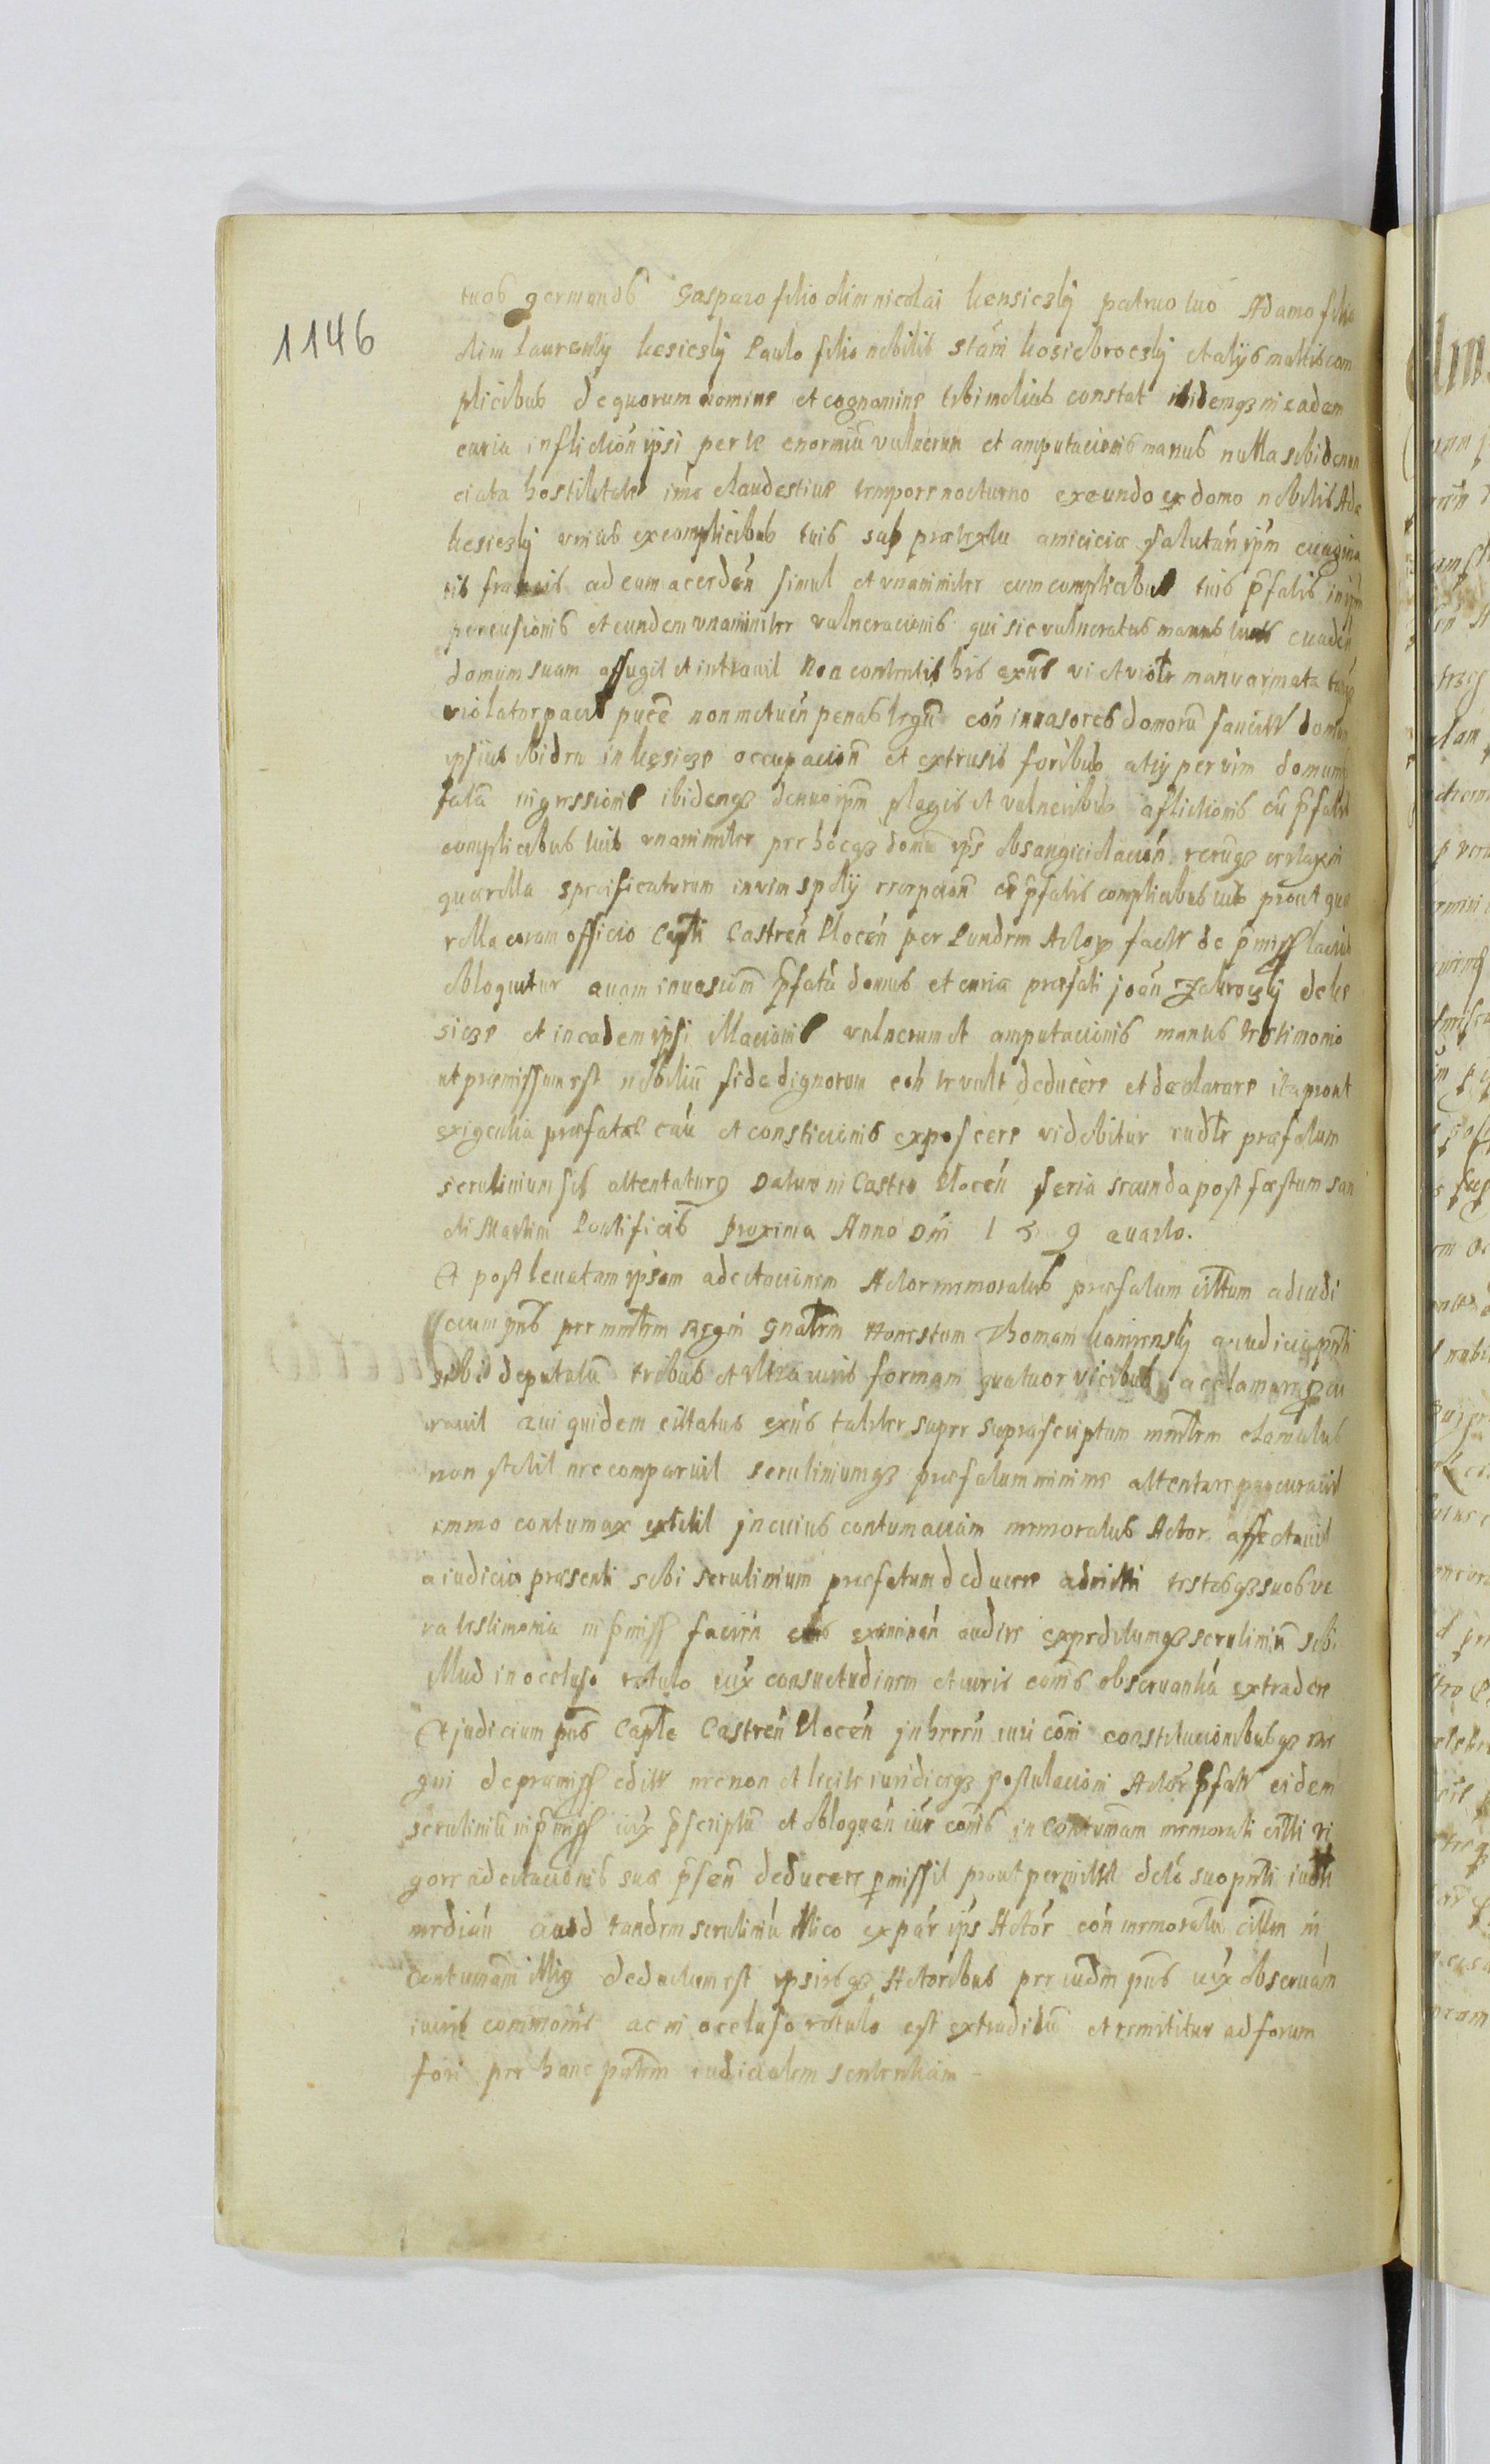 1146
tuos germanos Gasparo filio olim nicolai kensiczky patruo tuo Adamo filio
olim Laurenty kesiczky Paulo filio nobilis Stani kosiebroczky et alys multis com
plicibus de quorum nomine et cognomine tibi melius constat ibidemqz in eadem
curia inflictioń ipsi per te enormiũ vulnerum et amputacionis manus nulla sibi denun
ciata hostilitate imo clandestine tempore nocturno exeundo ex domo nobilis Ada
kesiczky unius ex complicibus tuis sub prætextu amiciciæ salutań ipm euagina
tis frameis ad eum acceden̄ simul et vnanimiter cum complicibus tuis p̄fatis in ipm
percusionis et eundem vnanimiter vulneracionis qui sic vulneratus manus tuas euaden̄
domum suam affugit et intrauit Non contentus his exn̄s vi et violr manu armata tanqz
violator pacis puc̄e non metueń penas legũ coń inuasores domorũ sancit domum
ipsius ibidem in kesicze occupacioñ et extrusis foribus at ÿ per vim domum
fatã ingressionis ibidemqz denuo ipm plagis et vulneribus aflictionis cũ p̄fatis
complicibus tuis vnanimiter per hocqz domũ ips̄ obsangicilacioń rerũqz
quærella specificatarum in vim spoly recepcioñ cũ p̄fatis complicibus tuis prout quæ
rella coram officio Capti Castreń Plocen̄ per Eundem Actorem fact de p̄miss lacius
obloquitur Quam inuasiom̄ p̄fatã domus et curiæ præfati Joań Zakroczky de ke
sicze et in eadem ipsi illacionis vulnerum et amputacionis manus testimonio
ut præmissum est nobiliũ fide dignorum coń te vult deducere et declarare ita prout
exigencia præfatæ cau et constitucionis exposcere videbitur audtr præfatum
scrutinium sib attentaturq Datum in Castro Plocen̄ feria secunda post festum san
cti Martini Pontificis proxima Anno Dn̄i 1 5 9 quarto.
Et post leuatam ipsam adcitacionem Actor memoratus præfatum cittum ad iudi
cium pn̄s per mn̄trm Regm̄ Gnalem Honestum Thomam kamiensky a iudicio pn̄ti
sibi deputatũ tribus et vltra iuris formam quatuor vicibus acclamare cu
rauit Qui quidem cittatus exn̄s taliter super suprascriptum mn̄trm clamatus
non stetit nec comparuit scrutiniumqz præfatum minime attentare procurauit
immo contumax extitit in cuius contumaciam memoratus Actor affectauit
a iudicio præsenti sibi scrutinium præfatum deducere admitti testesqz suos ve
ra testimonia in p̄miss facień examinań audire expeditumqz scrutiniũ sibi
illud in occluso rotulo iux consuetudinem et iuris com̄s obseruantiã extradere
Et judicium pn̄s Capt̄le Castreń Plocen̄ inhæreń iuri com̄i constitucionibusqz re
gni de præmiss editis necnon et licite iuridiceqz postulacioni Actor̄ p̄fati eidem
scrutiniũ in p̄miss iux p̄scriptũ et obloquen̄ iur com̄s in contumam memorati citti ri
gore adcitacionis suæ p̄seń deducere p̄missit prout permittit dcto suo pn̄ti iudti
mediań Quod tandem scrutiniũ illico ex par ips Actor̄ coń memoratũ cittm in
contumam illiq deductum est ipsisqz Actoribus per iudm pn̄s iux obseruam
iuris communis ac in occluso rotulo est extraditũ et remititur ad forum
fori per hanc pn̄tem iudicialem sententiam